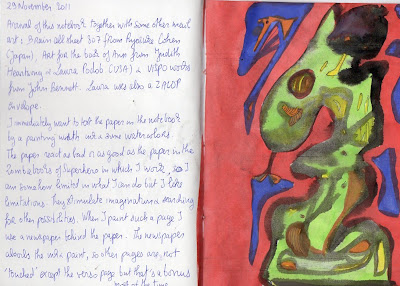 29 November 2011
Arrival of this notebook together with some other mail
art : Brain cell sheet 807 from Ryosuke Cohen
(Japan), Art for the back of Ann from Judith
& Laura Podob (USA) & VISPO works
from John Bennett. Laura was also a
envelope.
I immediately want to test the paper in the notebook
by a painting with ink & some watercolors.
The paper react as bad & as good as the paper in the
Zombiebooks of Superhero in which I work, so I
am somehow limited in what I can do but I like
limitations. They stimulate imagination & searching
for other possibilities. When I paint such a page I
use a newspaper behind the paper. The newspaper
absorbs the ink & paint, so other pages are not
"touched" except the verso page but that's a bonus
most of the time